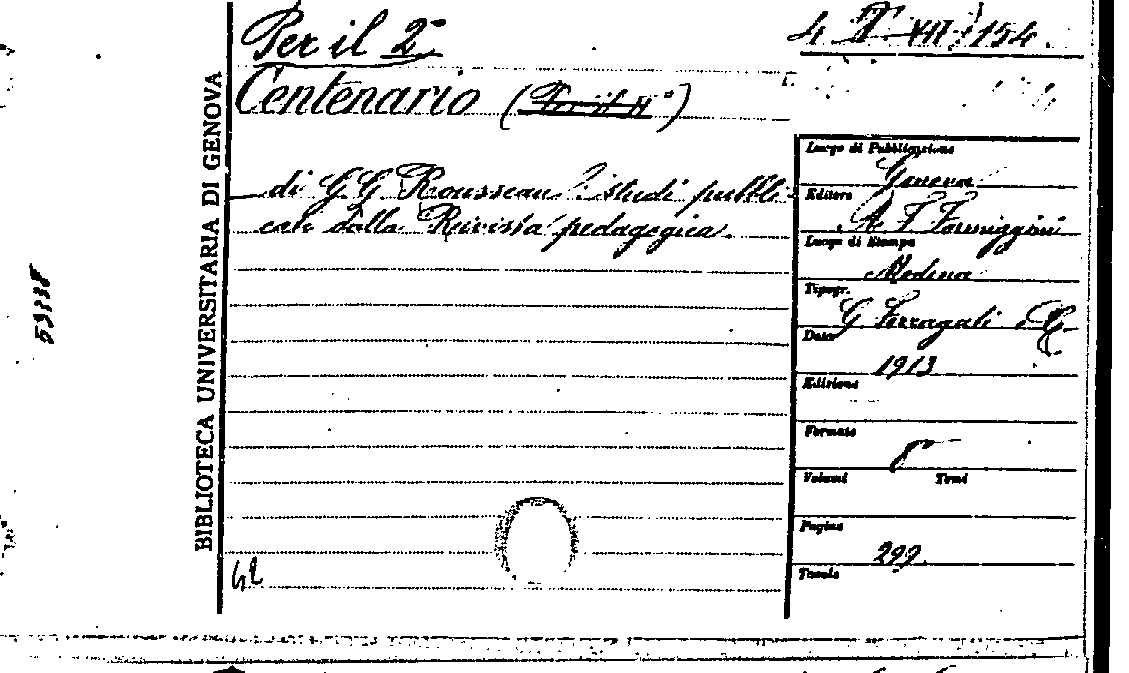 Per il 2°
4 T VII 154.
Centenario (Per il II°)
di G. G. Rousseau: studi pubbli-
cati dalla Rivista pedagogica.
BIBLIOTECA UNIVERSITARIA DI GENOVA
Luogo di Pubblicazione
Genova
Editore
A. F. Formiggini
Luogo di Stampa
Modena
Tipogr.
G. Ferraguti e C.
Data
1913
Edizione
Formato
8°
Volumi Tomi
Pagine
299.
Tavole